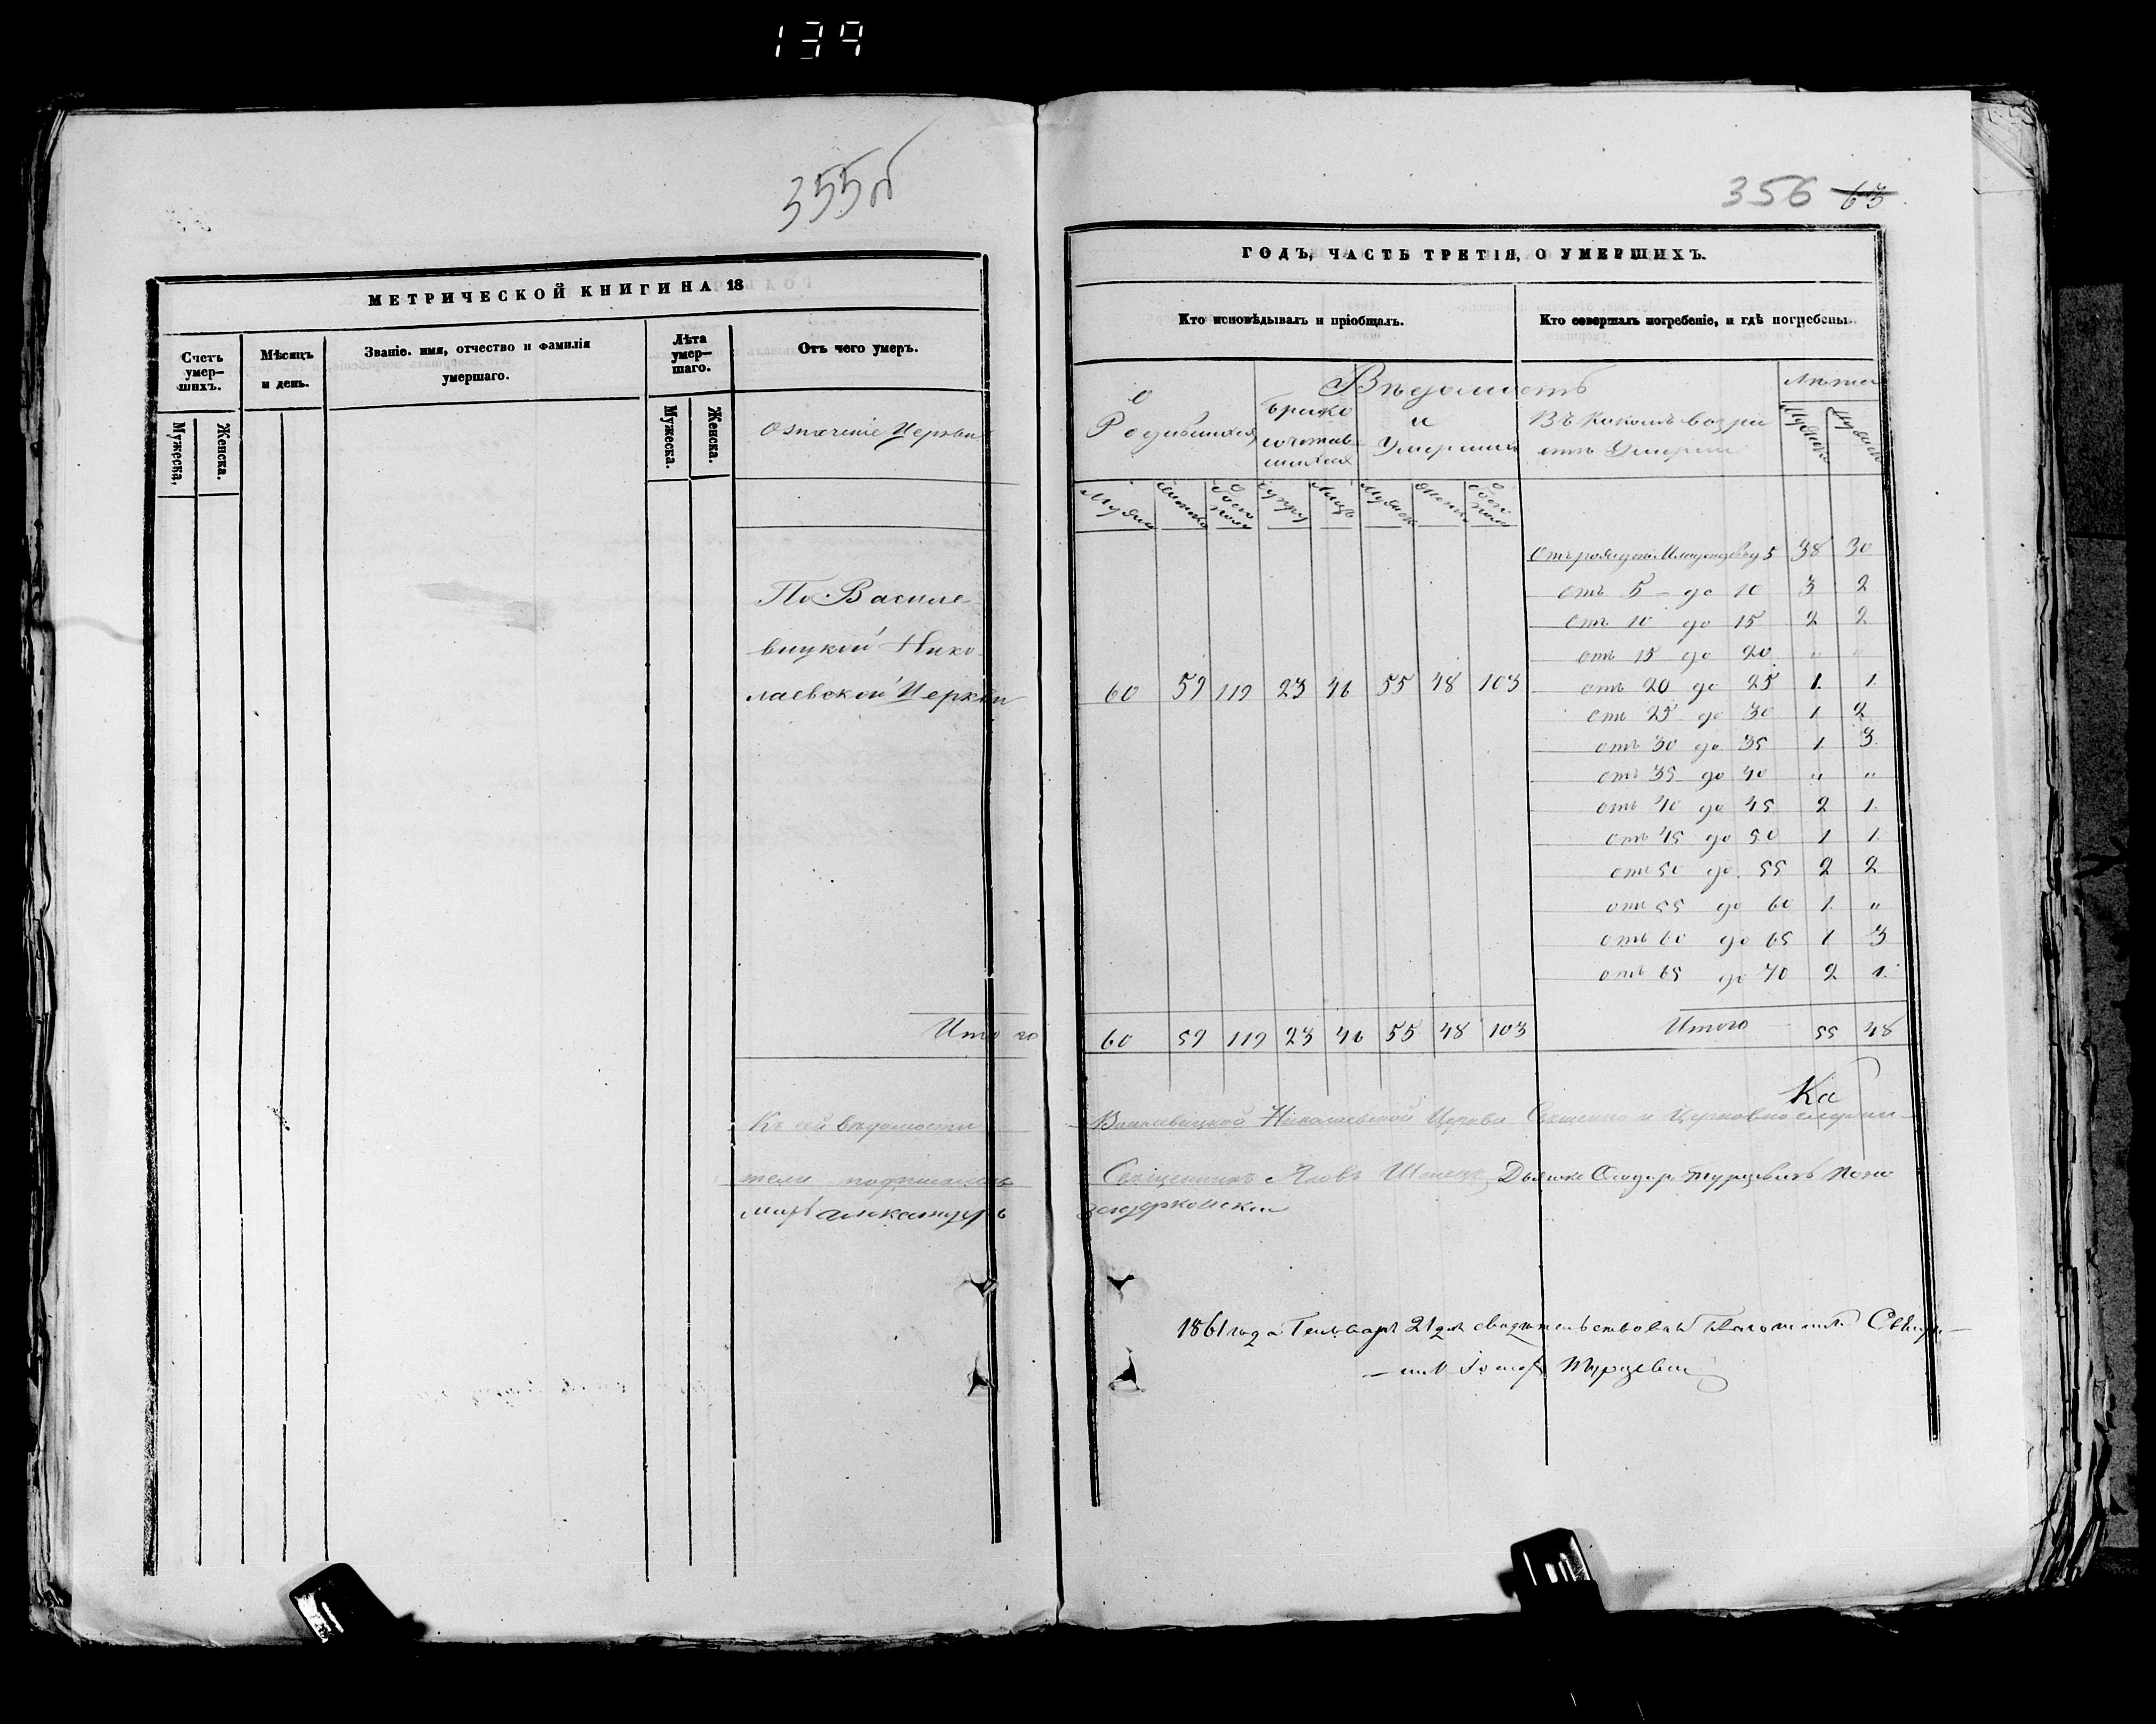 139
355об
МЕТРИЧЕСКОЙ КНИГИ НА 18
Счетъ умер-шихъ.
Мѣсяцъ и день.
Званіе. имя, отчество и фамилія умершаго.
Лѣта умер-шаго.
Отъ чего умеръ.
Мужеска,
Женска.
Мужеска.
Женска.
Означеніе Церкви
По Василе-
вицкой Нико-
лаевской Церкви
Итого
356 63
ГОДЪ, ЧАСТЬ ТРЕТІЯ, О УМЕРШИХЪ.
Кто исповѣдывалъ и пріобщалъ.
Кто совершалъ погребеніе, и гдѣ погребены.
Вѣдомость
О Родившихся
Брако сочетав шихся
и Умершихъ
Въ какомъ возра
стѣ Умерли
Лѣта
60 59 119 23 46 55 48 103
Отъ рожденія 5 38 30
отъ 5 - до 10 3 2
отъ 10 до 15 2 2
отъ 15 до 20 " "
отъ 20 до 25 1. 1.
отъ 25 до 30 1 2
отъ 30 до 35 1. 3.
отъ 35 до 40 " "
отъ 40 до 45 2 1.
отъ 45 до 50 1 1.
отъ 50 до 55 2 2
отъ 55 до 60 1. "
отъ 60 до 65 1 3
отъ 65 до 70 2 1.
60 59 119 23 46 55 48 103 Итого 55 48
Къ сей вѣдомости Василевицкой Николаевской Церкви Священно и Церковнослужи-
тели подписались Священникъ Яковъ Дьячкъ Ѳеодоръ Турцевичъ Поно
марь Александръ
1861 года Генваря 21 дня свидѣтельствовалъ Благочинный Священ-
никъ Іосифъ Турцевичъ